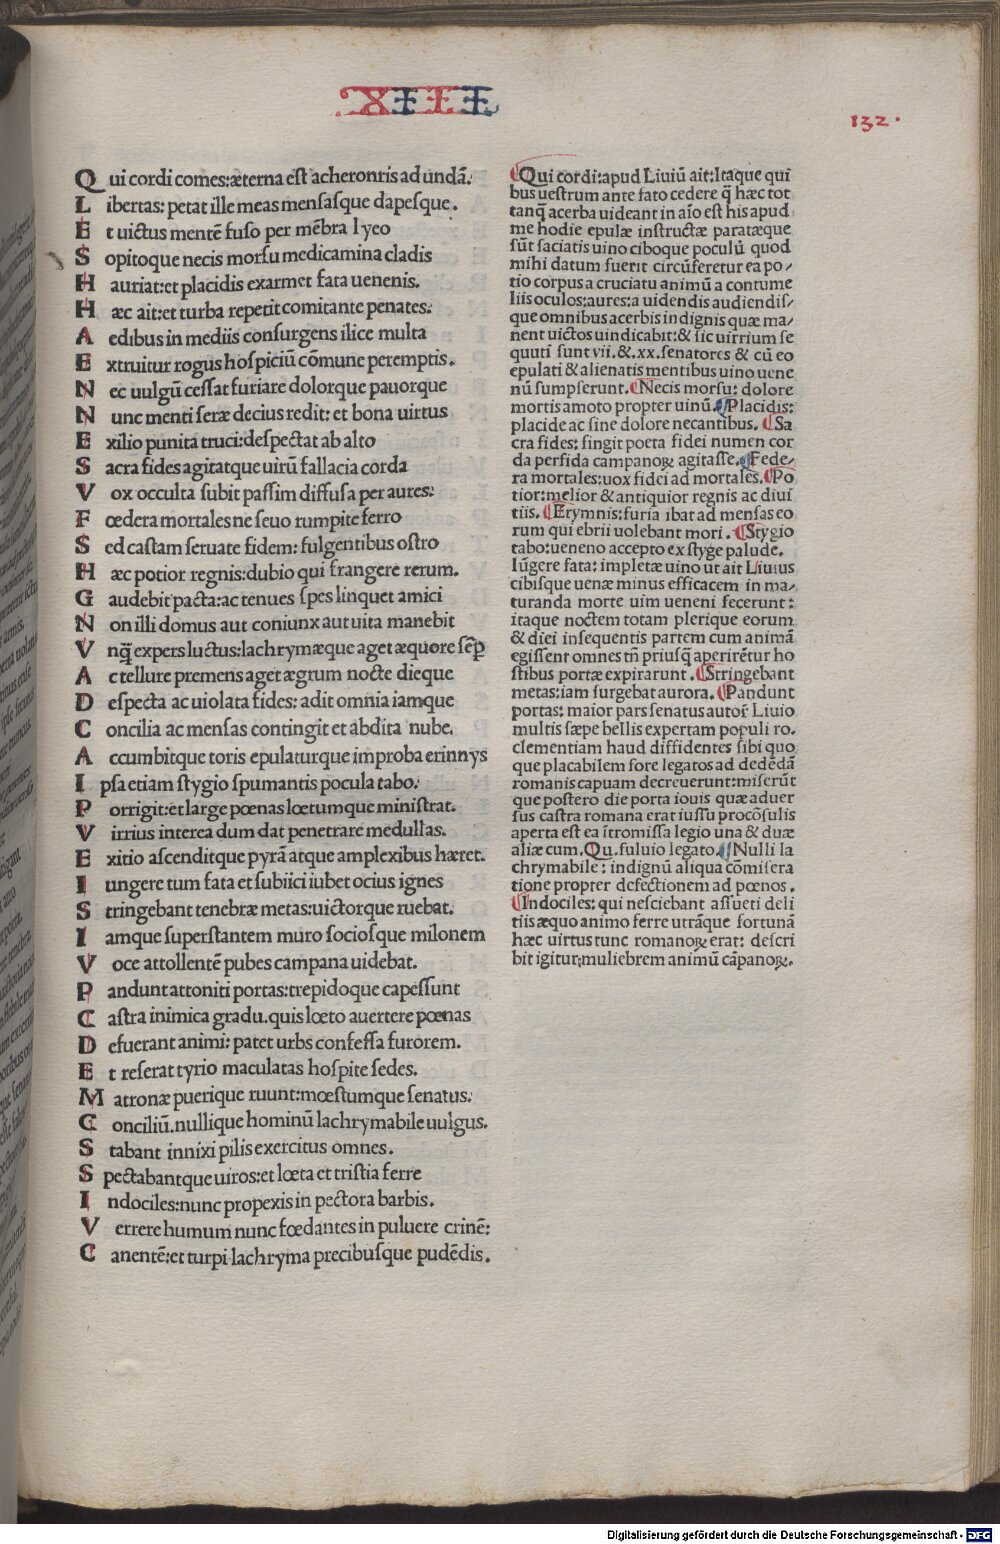 XIII
132.
Qui cordi comes: æterna est acherontis ad undā.
Libertas: petat ille meas mensasque dapesque.
Et uictus mentē fuso per mēbra lyeo
Sopitoque necis morsu medicamina cladis
Hauriat: et placidis exarmet fata uenenis.
Hæc ait: et turba repetit comitante penates.
Aedibus in mediis consurgens ilice multa
Extruitur rogus hospiciū cōmune peremptis.
Nec uulgū cessat furiare dolorque pauorque
Nunc menti seræ decius redit: et bona uirtus
Exilio punita truci: despectat ab alto
Sacra fides agitatque uirū fallacia corda
Vox occulta subit passim diffusa per aures:
Fœdera mortales ne seuo rumpite ferro
Sed castam seruate fidem: fulgentibus ostro
Hæc potior regnis: dubio qui frangere rerum.
Gaudebit pacta: ac tenues spes linquet amici
Non illi domus aut coniunx aut uita manebit
Vnq̄ expers luctus: lachrymæque aget æquore sēp
Ac tellure premens aget ægrum nocte dieque
Despecta ac uiolata fides: adit omnia iamque
Concilia ac mensas contingit et abdita nube.
Accumbitque toris epulaturque improba erinnys
Ipsa etiam stygio spumantis pocula tabo.
Porrigit: et large pœnas lœtumque ministrat.
Virrius interea dum dat penetrare medullas.
Exitio ascenditque pyrā atque amplexibus hæret.
Iungere tum fata et subiici iubet ocius ignes
Stringebant tenebræ metas: uictorque ruebat.
Iamque superstantem muro sociosque milonem
Voce attollentē pubes campana uidebat.
Pandunt attoniti portas: trepidoque capessunt
Castra inimica gradu. quis lœto auertere pœnas
Defuerant animi: patet urbs confessa furorem.
Et reserat tyrio maculatas hospite sedes.
Matronæ puerique ruunt: mœstumque senatus.
Conciliū. nullique hominū lachrymabile uulgus.
Stabant innixi pilis exercitus omnes.
Spectabantque uiros: et lœta et tristia ferre
Indociles: nunc propexis in pectora barbis.
Verrere humum nunc fœdantes in puluere crinē:
Canentē: et turpi lachryma precibusque pudēdis.
Qui cordi: apud Liuiū ait: Itaque qui
bus uestrum ante fato cedere q̄ hæc tot
tanq̄ acerba uideant in aīo est his apud
me hodie epulæ instructæ paratæque
sūt saciatis uino ciboque poculū quod
mihi datum fuerit circūferetur ea po/
tio corpus a cruciatu animū a contume
liis oculos: aures: a uidendis audiendis/
que omnibus acerbis indignis quæ ma/
nent uictos uindicabit: & sic uirrium se
quuti sunt vii. & .xx. senatores & cū eo
epulati & alienatis mentibus uino uene
nū sumpserunt. Necis morsu: dolore
mortis amoto propter uinū. Placidis:
placide ac sine dolore necantibus. Sa
cra fides: fingit poeta fidei numen cor
da perfida campanoꝝ agitasse. Fede/
ra mortales: uox fidei ad mortales. Po
tior: melior & antiquior regnis ac diui
tiis. Erymnis: furia ibat ad mensas eo
rum qui ebrii uolebant mori. Stygio
tabo: ueneno accepto ex styge palude.
Iūgere fata: impletæ uino ut ait Liuius
cibisque uenæ minus efficacem in ma/
turanda morte uim ueneni fecerunt:
itaque noctem totam plerique eorum
& diei insequentis partem cum animā
egissent omnes tn̄ priusq̄ aperirētur ho
stibus portæ expirarunt. Stringebant
metas: iam surgebat aurora. Pandunt
portas: maior pars senatus autor̄ Liuio
multis sæpe bellis expertam populi ro.
clementiam haud diffidentes sibi quo
que placabilem fore legatos ad dedēdā
romanis capuam decreuerunt: miserūt
que postero die porta iouis quæ aduer
sus castra romana erat iussu procōsulis
aperta est ea ītromissa legio una & duæ
aliæ cum. Qu. fuluio legato. Nulli la
chrymabile: indignū aliqua cōmisera
tione propter defectionem ad pœnos.
Indociles: qui nesciebant assueti deli
tiis æquo animo ferre utrāque fortunā
hæc uirtus tunc romanoꝝ erat: descri
bit igitur: muliebrem animū cāpanoꝝ.
Digitalisierung gefördert durch die Deutsche Forschungsgemeinschaft - DFG